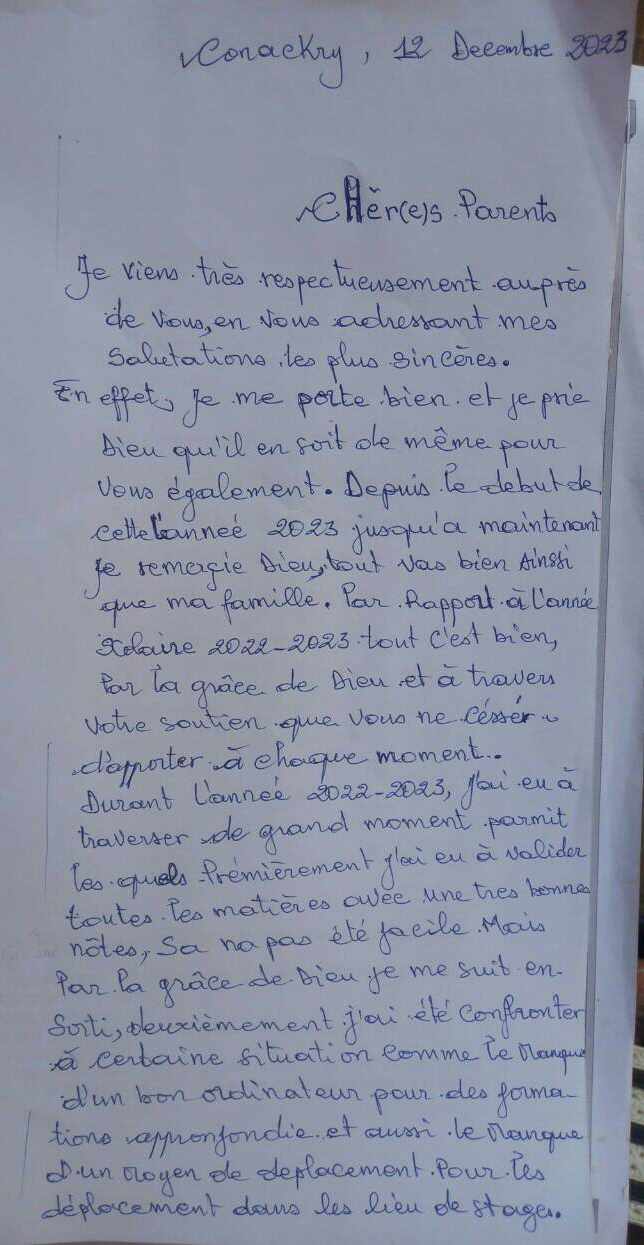 Conackry, 12 Decembre 2023
CHèr(e)s Parents
Je viens très respectueusement auprès
de Vous, en Vous adressant mes
Salutations les plus sincères.
En effet, Je me porte bien et je prie
Dieu qu'il en soit de même pour
Vous également. Depuis le debut de
cette l'anneé 2023 jusqu'a maintenant
Je remercie Dieu, tout vas bien Ainssi
que ma famille. Par Rapport à l'année
Scolaire 2022-2023 tout c'est bien,
Par la grâce de Dieu et à travers
Votre soutien que vous ne césser
d'apporter à chaque moment..
Durant l'anneé 2022-2023, j'ai eu à
traverser de grand moment parmit
les quels Prémièrement j'ai eu à valider
toutes les matières avec une tres bonnes
nôtes, Sa na pas été facile Mais
Par la grâce de Dieu je me suit en-
Sorti, deuxièmement j'ai été Confronter
à certaine situation comme le Manque
d'un bon ordinateur pour des forma-
tions appronfondie et aussi le Manque
d'un Moyen de deplacement Pour les
déplacement dans les lieu de stages.